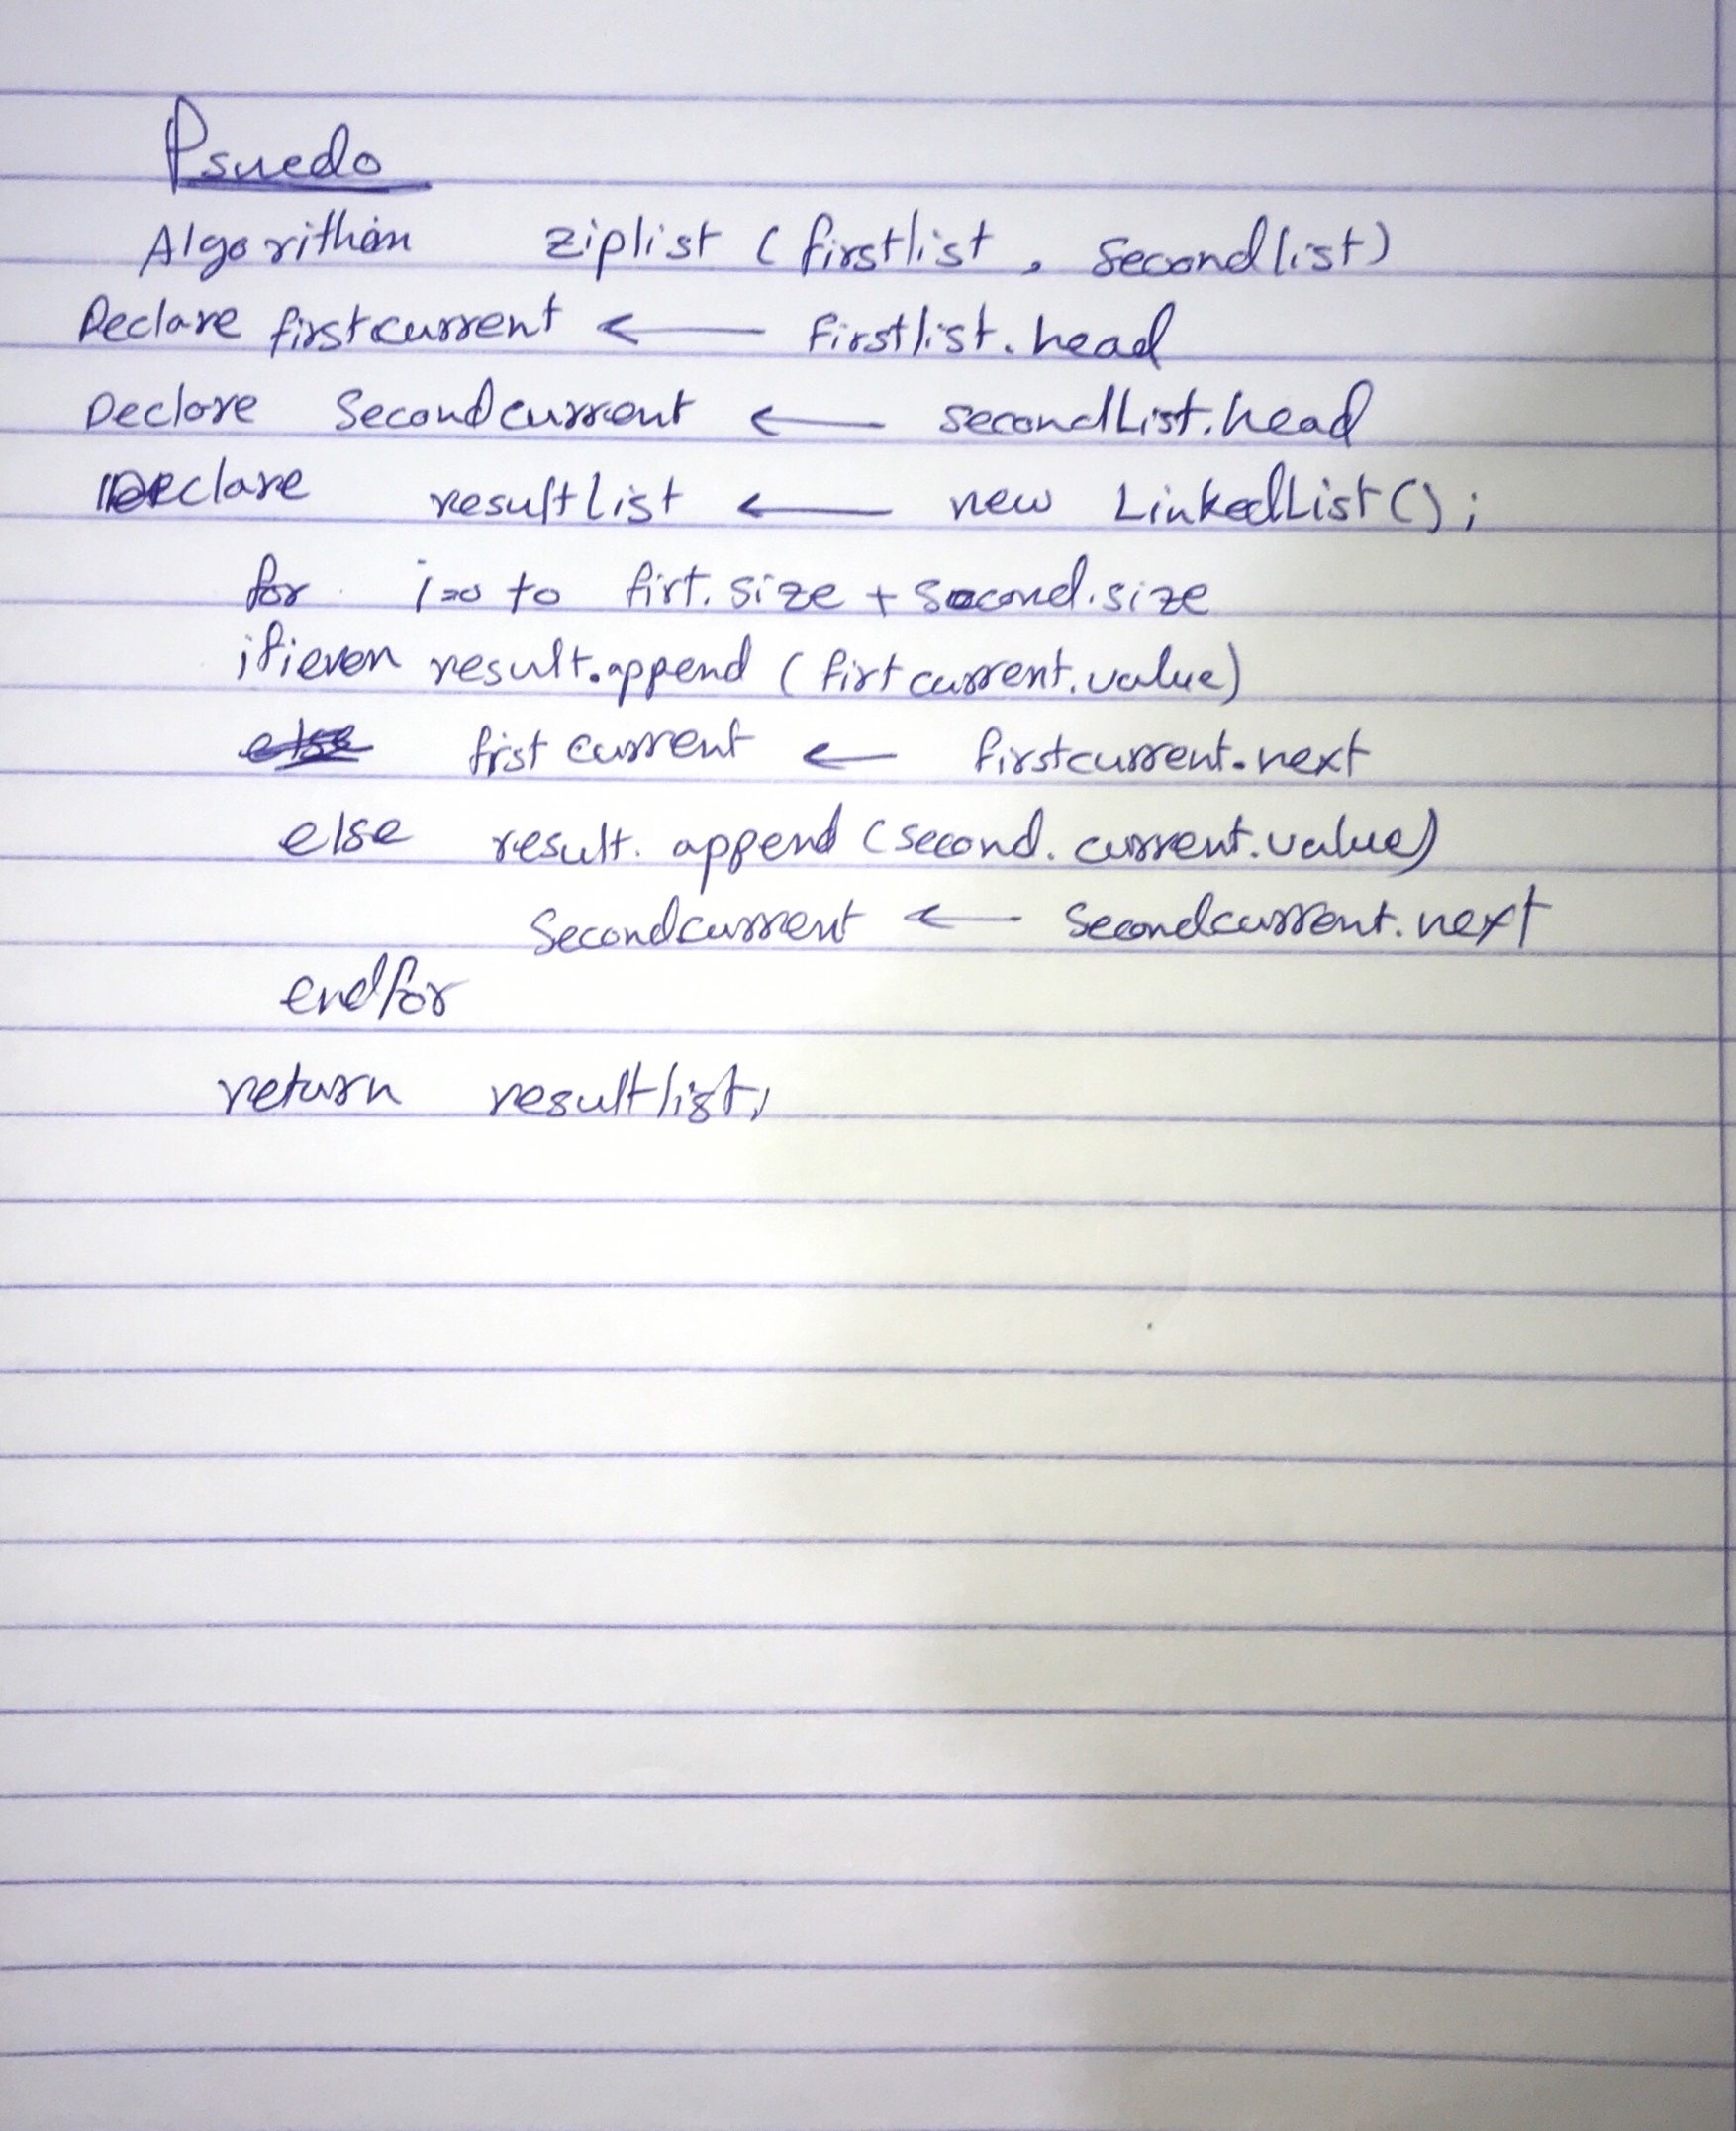 Psuedo
Algorithm ziplist ( firstlist , Secondlist)
Declare firstcurrent ← firstlist.head
Declare Secondcurrent ← secondList.head
Declare resultlist ← new LinkedList();
for i=0 to firt.size + second.size
if i even result.append ( firtcurrent.value)
fist current ← firstcurrent.next
else result. append (second. current.value)
Secondcurrent ← Secondcurrent.next
endfor
return resultlist,